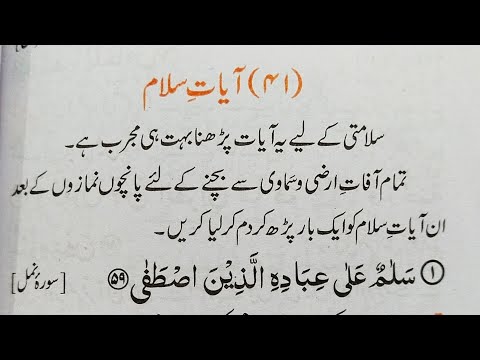 (۴۱) آیاتِ سلام
سلامتی کے لیے یہ آیات پڑھنا بہت ہی مجرب ہے۔
تمام آفاتِ ارضی و سماوی سے بچنے کے لئے پانچوں نمازوں کے بعد
ان آیاتِ سلام کو ایک بار پڑھ کر دم کر لیا کریں۔
۱ سَلٰمٌ عَلٰی عِبَادِهِ الَّذِیْنَ اصْطَفٰی ۵۹ [سورۂ نمل]